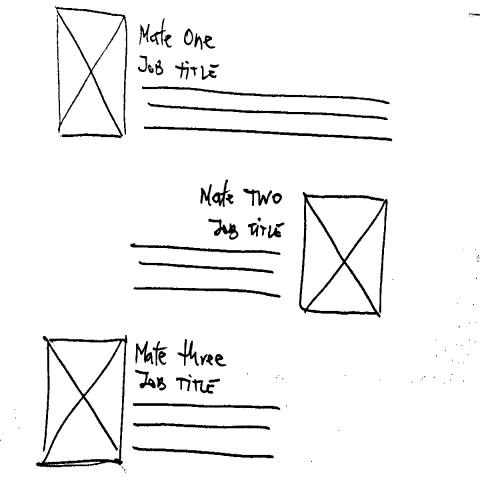 Mate One
Job TiTLE
Mate TWO
Job TiTLE
Mate three
Job TiTLE